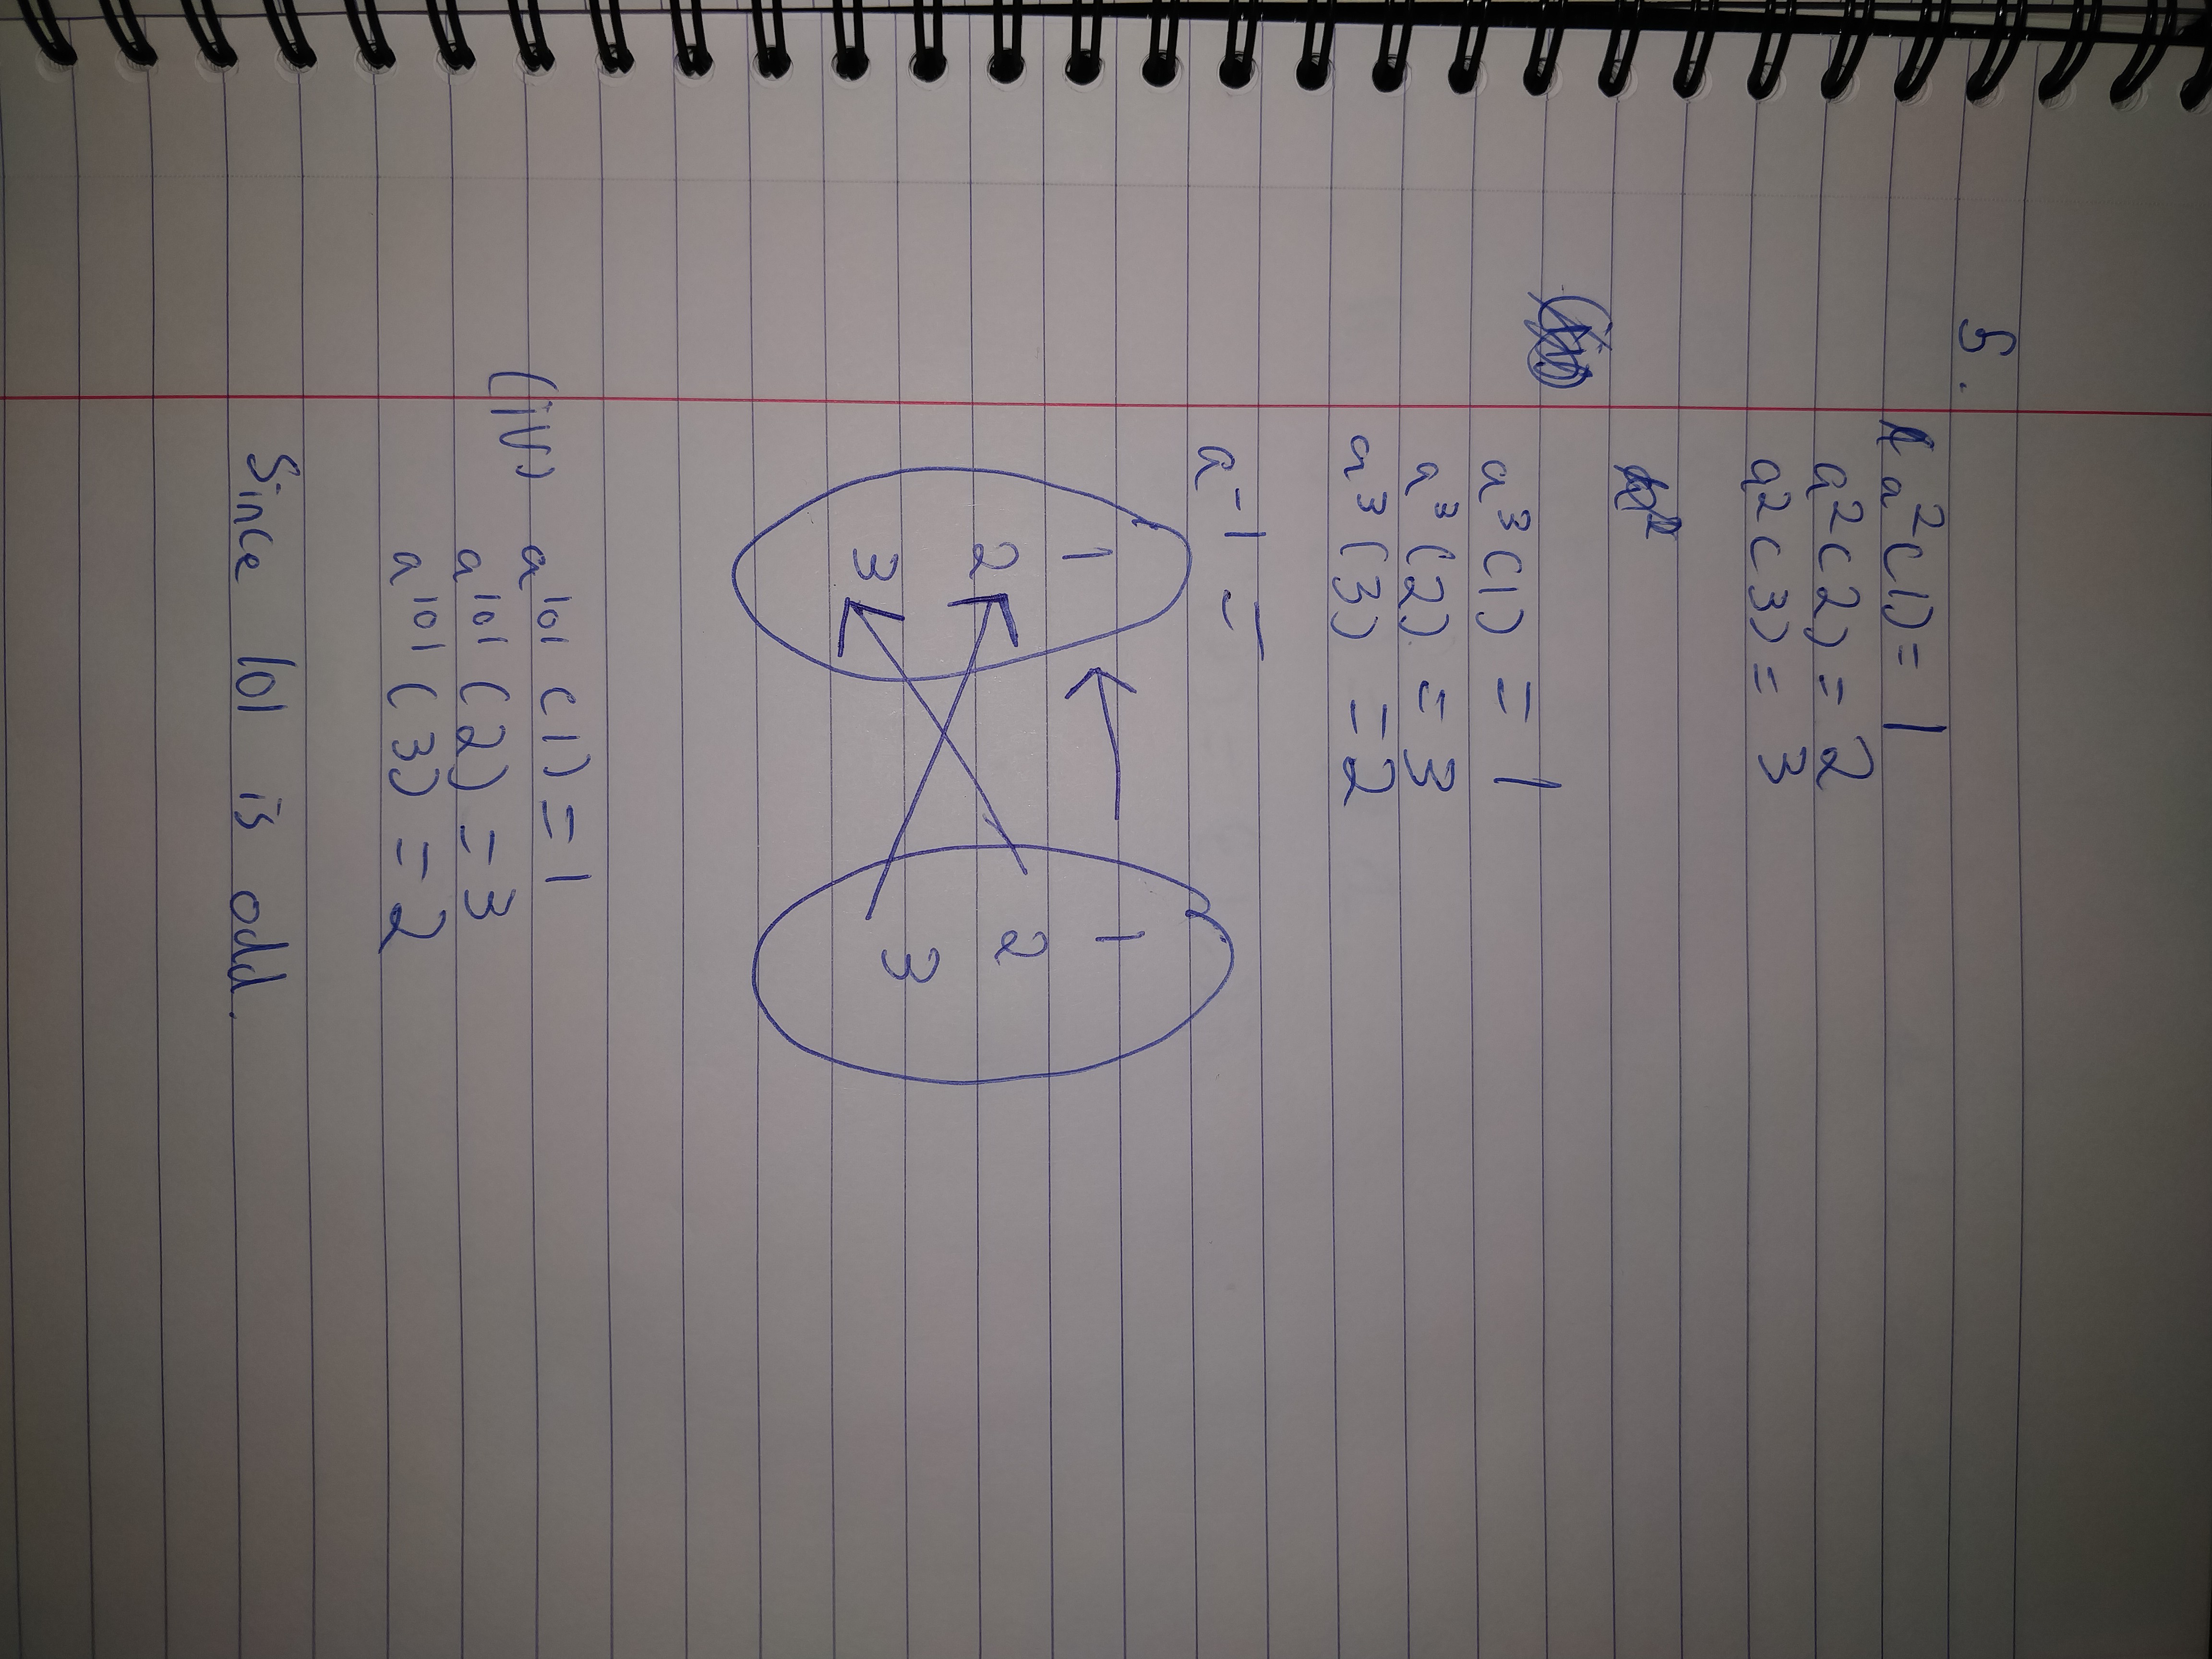 5.
a²(1) = 1
a²(2) = 2
a²(3) = 3
a³(1) = 1
a³(2) = 3
a³(3) = 2
a⁻¹ =
1 1
2 2
3 3
(iv) a¹⁰¹(1) = 1
a¹⁰¹(2) = 3
a¹⁰¹(3) = 2
Since 101 is odd.